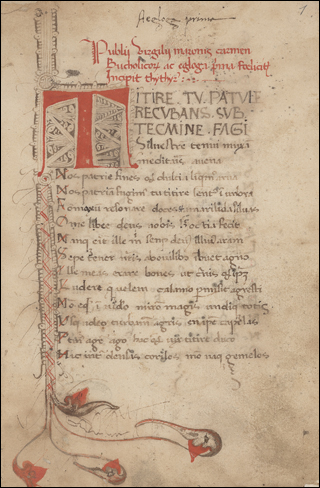 Aegloga prima
1
Publij Virgilij maronis carmen
Bucholicon ac egloga prima foeliciter
Incipit thytyrꝰ
TITIRE . TV . PATVLE
RECVBANS . SVB .
TECMINE . FAGI
Siluestre tenui musa
meditaris auena
Nos patrie fines & dulcia arua
Nos patria fugimꝰ tu titire lentꝰ i umbra
Formosa resonare doces amarillida siluas
O melibee deus nobis hec otia fecit
Nanq erit ille mi semp deus illius aram
Sepe tener nris abouilibus ibuet agno
Ille meas errare boues ut cernis & ipm
Ludere q uelem calamo permisit agresti
No eqd i uideo miror magis undiq totis
Vsq adeo turbam agris en ipse capelas
ago hac & uix titire duco
Hic int densas corilos mo nq gemelos